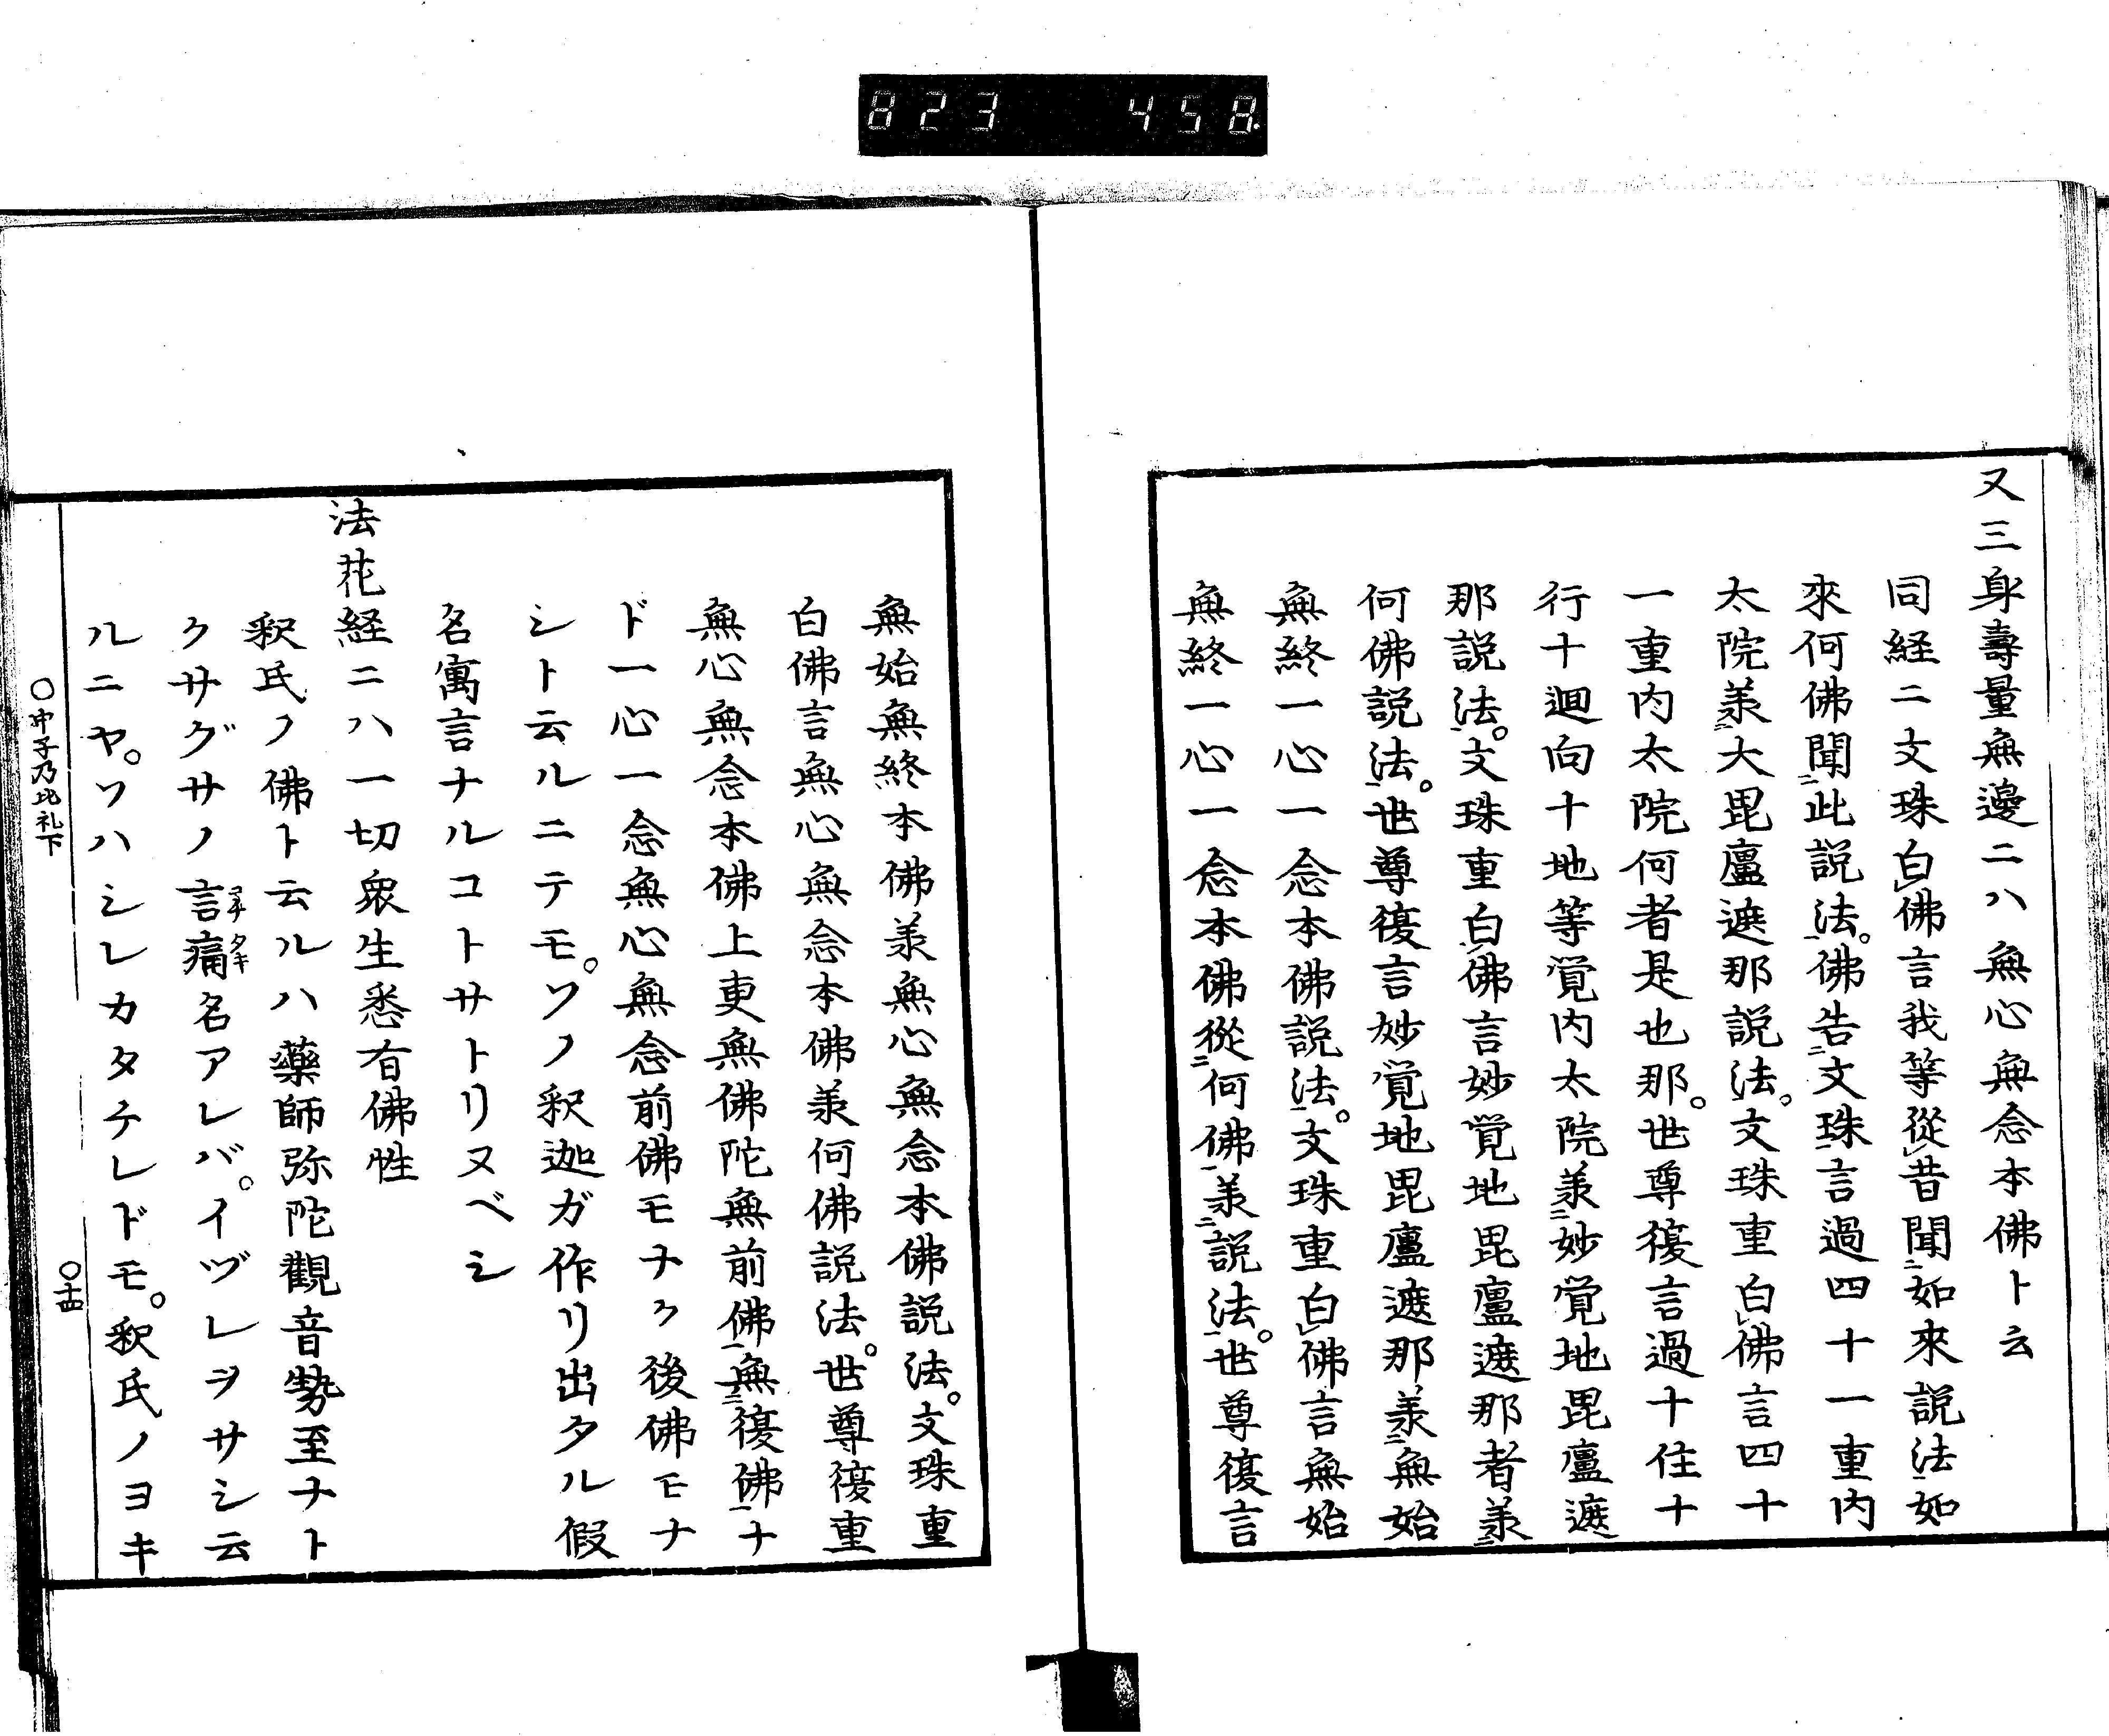 823 458
又三身壽量無邊ニハ無心無念本佛ト云
同経ニ文珠白佛言我等從昔聞如來説法如
來何佛聞此説法。佛告文珠言過四十一重内
太院羕大毘廬遮那説法。文珠重白佛言四十
一重内太院何者是也那。世尊復言過十住十
行十迴向十地等覚内太院羕妙覚地毘廬遮
那説法。文珠重白佛言妙覚地毘廬遮那者羕
何佛説法。世尊復言妙覚地毘廬遮那羕無始
無終一心一念本佛説法。文珠重白佛言無始
無終一心一念本佛從何佛羕説法。世尊復言
無始無終本佛羕無心無念本佛説法。文珠重
白佛言無心無念本佛羕何佛説法。世尊復重
無心無念本佛上更無佛陀無前佛無復佛ナ
ド一心一念無心無念前佛モナク後佛モナ
シト云ルニテモ。ソノ釈迦ガ作リ出タル假
名寓言ナルコトサトリヌベシ
法花経ニハ一切衆生悉有佛性
釈氏ノ佛ト云ルハ藥師弥陀觀音勢至ナト
クサグサノ言痛名アレバ。イヅレヲサシ云
ルニヤ。ソハシレカタケレドモ。釈氏ノヨキ
〇中子乃比礼下
〇十四